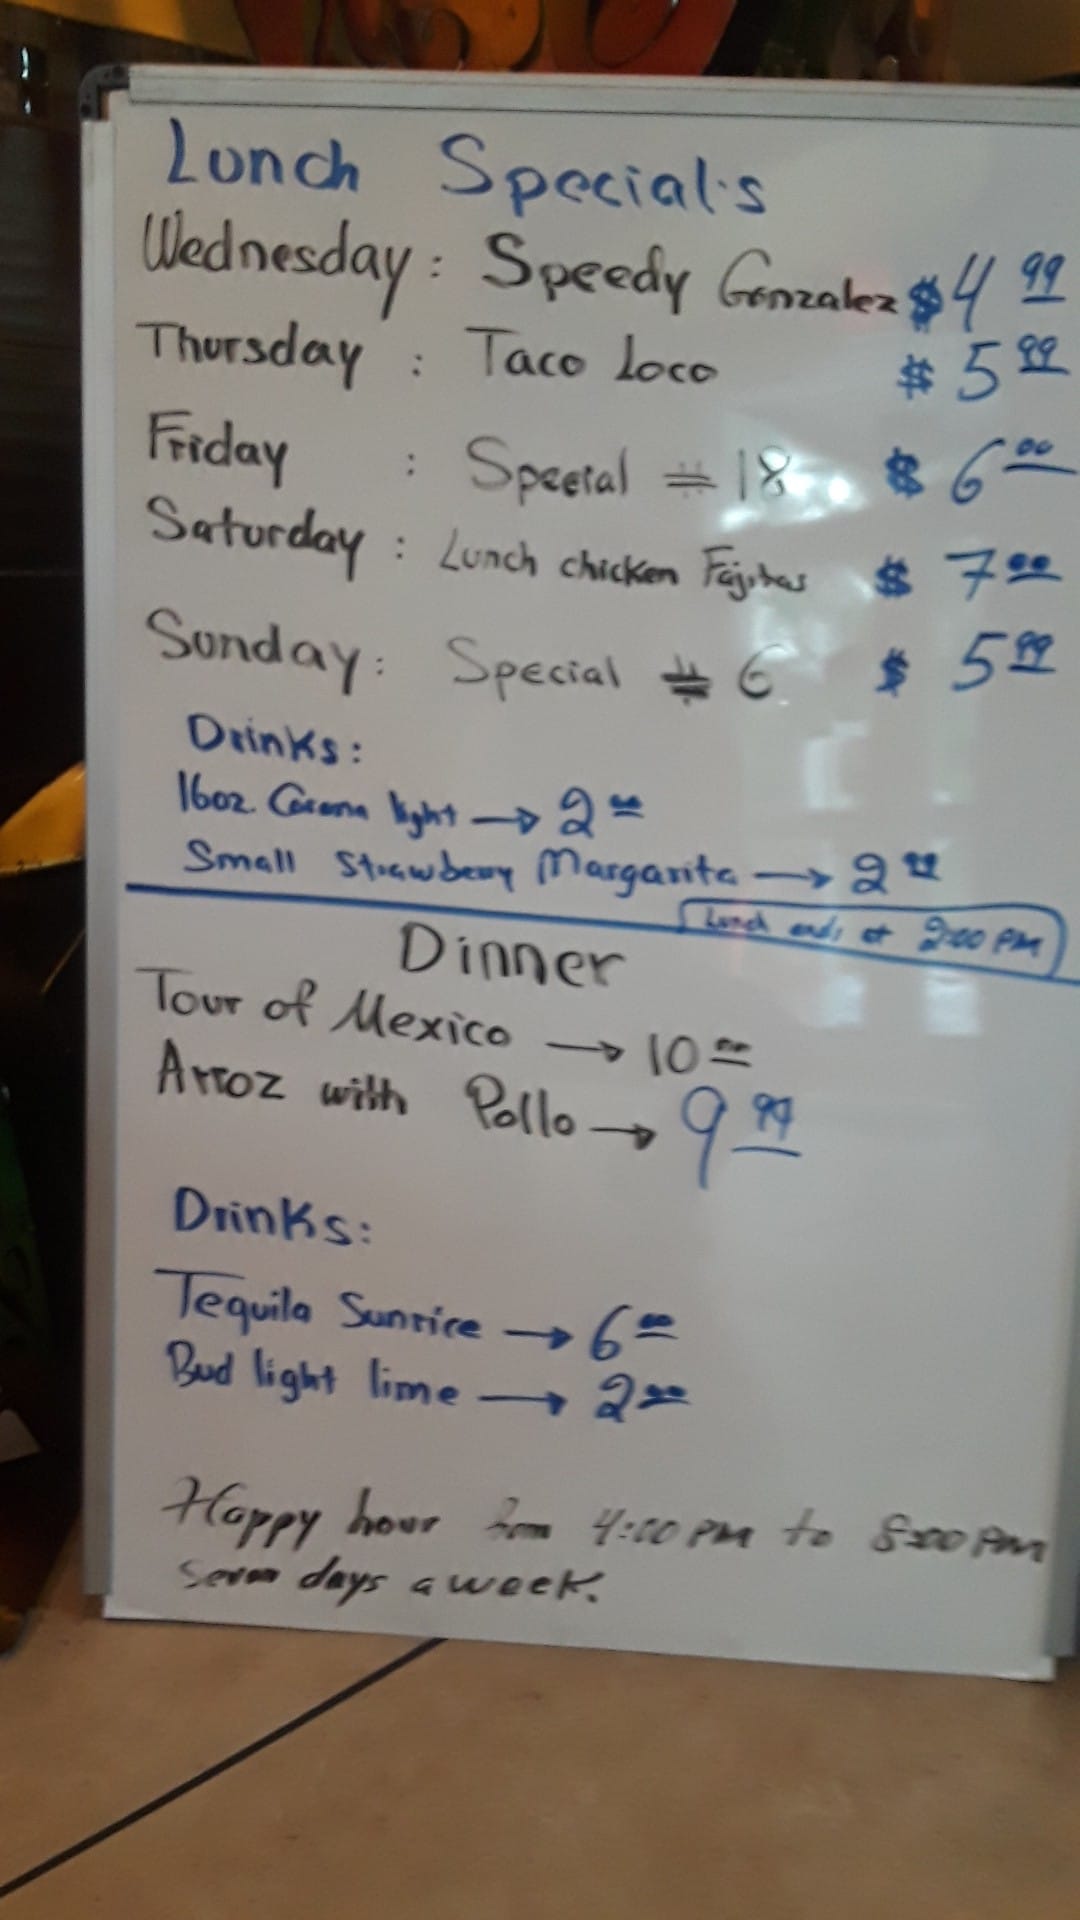 Lunch Specials
Wednesday: Speedy Gonzalez $4 99
Thursday: Taco Loco $5 99
Friday: Special #18 $6 00
Saturday: Lunch chicken Fajitas $7 00
Sunday: Special #6 $5 99
Drinks:
16oz. Corona light → 2 00
Small Strawberry Margarita → 2
Lunch ends at 2:00 PM
Dinner
Tour of Mexico → 10 00
Arroz with Pollo → 9 99
Drinks:
Tequila Sunrice → 6 00
Bud light lime → 2 00
Happy hour from 4:00 PM to 8:00 PM
seven days a week.